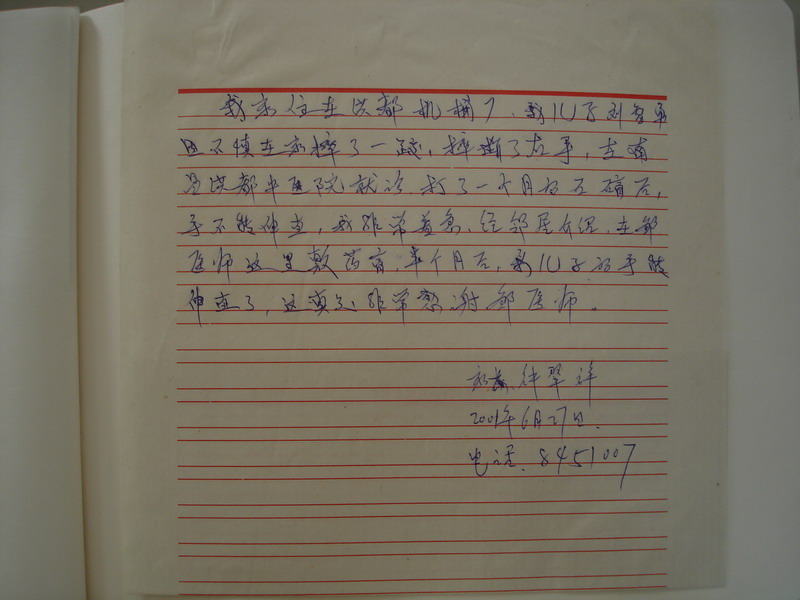 我家住在洪都机械厂,我儿子刘
因不慎在家摔了一跤,摔断了右手,在南
昌洪都中医院就诊,打了一个月的石膏后,
手不能伸直,我非常着急,经邻居介绍,在邹
医师这里敷药膏,半个月后,我儿子的手能
伸直了,这真是非常感谢邹医师。
家长
2001年6月27日.
电话.8451007